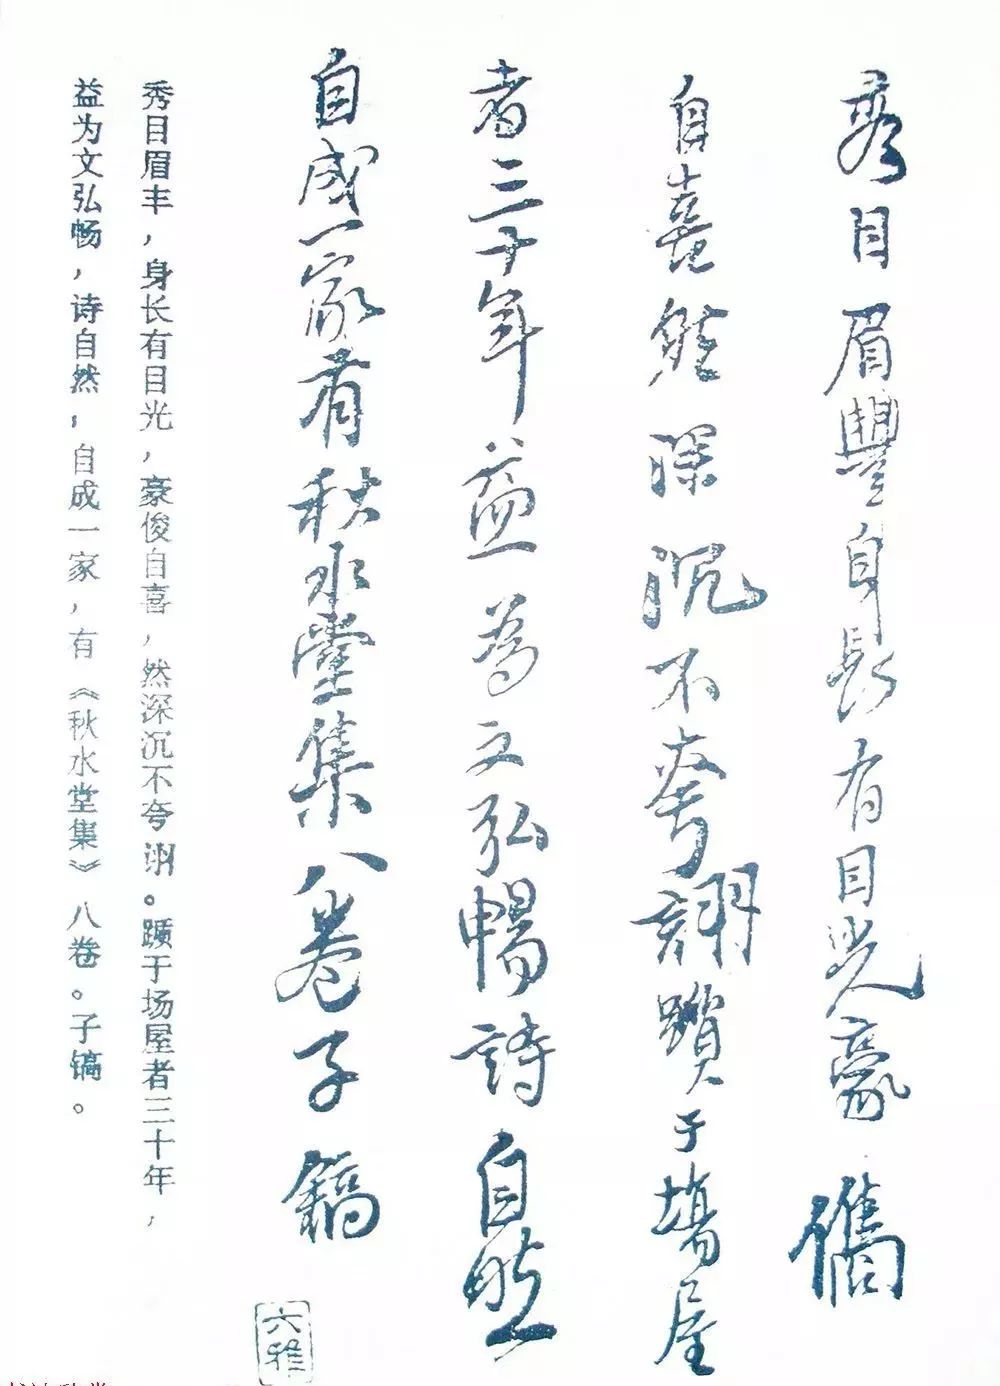 秀目眉豐身長有目光豪儁
自喜然深沉不夸詡躓于場屋
者三十年益為文弘暢詩自然
自成一家有秋水堂集八卷子鎬
秀目眉丰，身长有目光，豪俊自喜，然深沉不夸诩。踬于场屋者三十年，
益为文弘畅，诗自然，自成一家，有《秋水堂集》八卷。子镐。
六雅